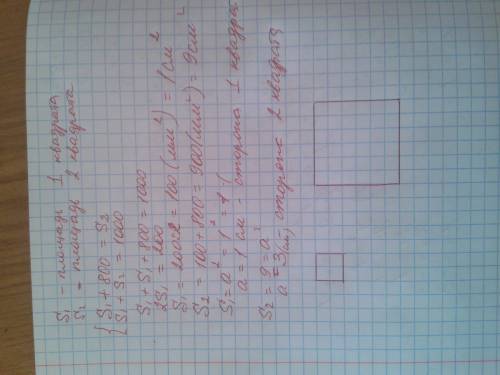 S₁ - площадь 1 квадрата
S₂ - площадь 2 квадрата
{ S₁ + 800 = S₂
{ S₁ + S₂ = 1000
S₁ + S₁ + 800 = 1000
2S₁ = 200
S₁ = 200:2 = 100 (мм²) = 1 см²
S₂ = 100 + 800 = 900 (мм²) = 9 см²
S₁ = a² = 1² = 1
a = 1 см - сторона 1 квадрата
S₂ = 9 = a²
a = 3 (см) - сторона 2 квадрата